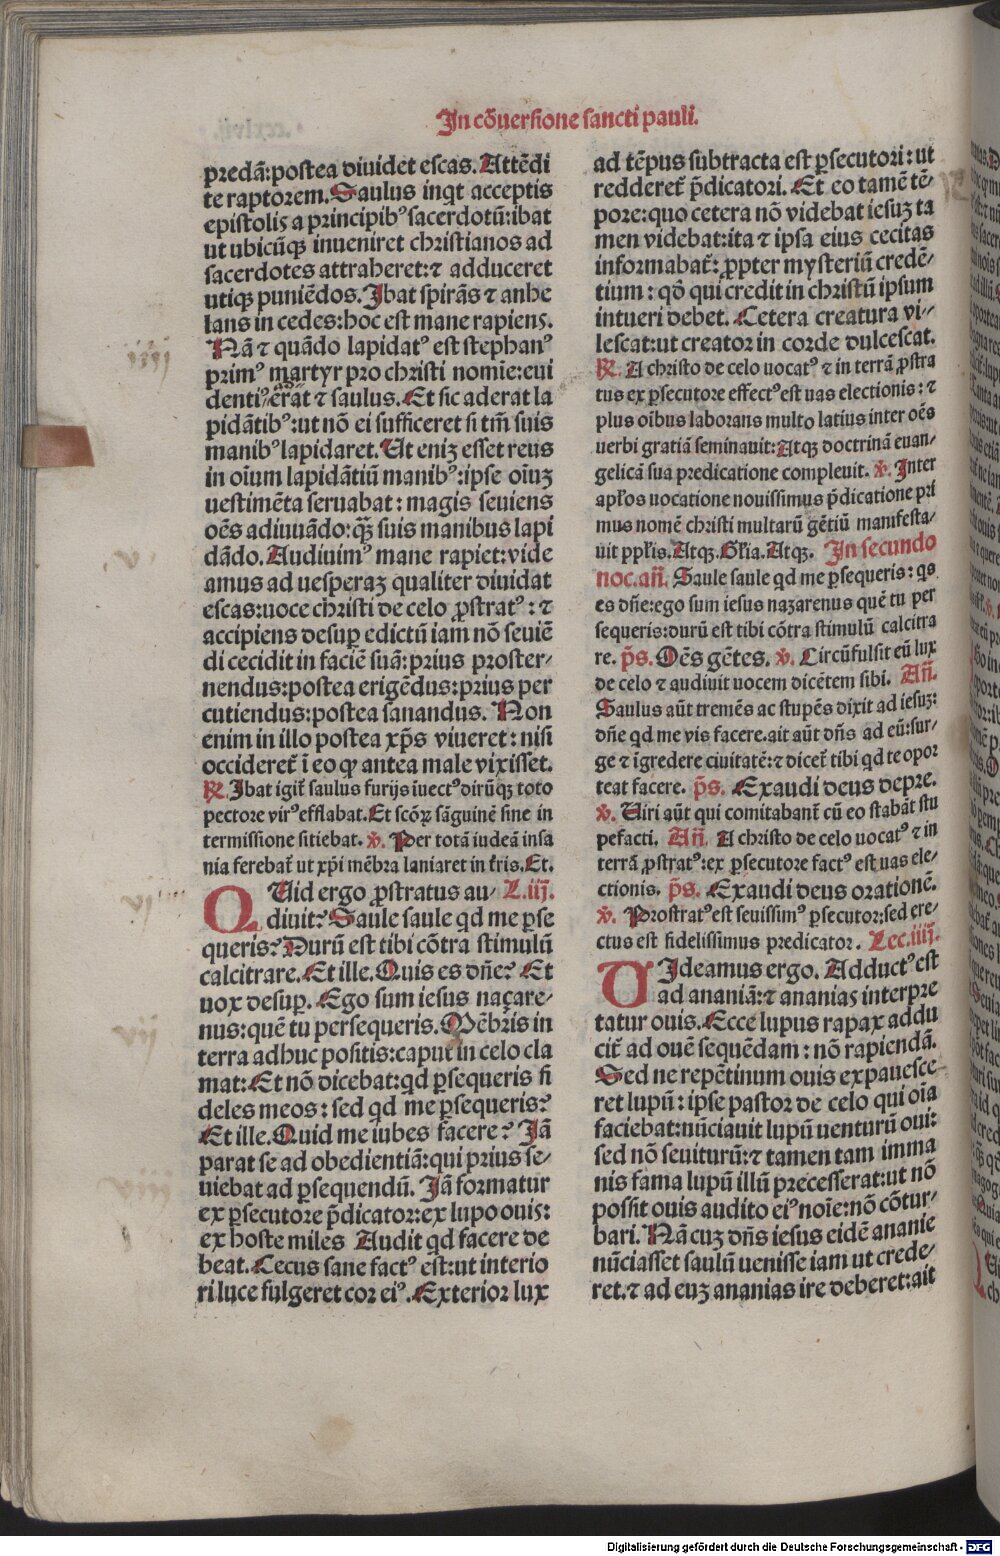 In cōuersione sancti pauli.
predā:postea diuidet escas. Attēdi
te raptorem. Saulus inqt acceptis
epistolis a principibꝰ sacerdotū:ibat
ut ubicūqꝫ inueniret christianos ad
sacerdotes attraheret:⁊ adduceret
utiqꝫ puniēdos. Ibat spirās ⁊ anhe
lans in cedes:hoc est mane rapiens.
Nā ⁊ quādo lapidatꝰ est stephanꝰ
primꝰ martyr pro christi nomie:eui
dentiꝰ aderat ⁊ saulus. Et sic aderat la
pidātibꝰ:ut nō ei sufficeret si tm̄ suis
manibꝰ lapidaret. Ut enīꝫ esset reus
in oīum lapidātiū manibꝰ:ipse oīuꝫ
uestimēta seruabat: magis seuiens
oēs adiuuādo:qꝫ̄ suis manibus lapi
dādo. Audiuimꝰ mane rapiet:vide
amus ad uesperaꝫ qualiter diuidat
escas:uoce christi de celo ꝓstratꝰ: ⁊
accipiens desuꝑ edictū iam nō seuiē
di cecidit in faciē suā:prius proster⸗
nendus:postea erigēdus:prius per
cutiendus:postea sanandus. Non
enim in illo postea xp̄s viueret: nisi
occideret̄ ī eo qꝙ antea male vixisset.
℟. Ibat igit̄ saulus furijs iuectꝰ dirūqꝫ toto
pectore virꝰ efflabat. Et scōꝝ sāguinē sine in
termissione sitiebat. ꝟ. Per totā iudeā insa
nia ferebat̄ ut xp̄i mēbra laniaret in t̄ris. Et.
QUid ergo ꝓstratus au⸗ L.iij.
diuit? Saule saule qd me ꝑse
queris? Durū est tibi cōtra stimulū
calcitrare. Et ille. Quis es dn̄e? Et
uox desuꝑ. Ego sum iesus naçare⸗
nus:quē tu persequeris. Mēbris in
terra adhuc positis:caput in celo cla
mat: Et nō dicebat:qd ꝑsequeris fi
deles meos: sed qd me ꝑsequeris?
Et ille. Quid me iubes facere? Iā
parat se ad obedientiā:qui prius se⸗
uiebat ad ꝑsequendū. Iā formatur
ex ꝑsecutore p̄dicator:ex lupo ouis:
ex hoste miles Audit qd facere de
beat. Cecus sane factꝰ est:ut interio
ri luce fulgeret cor eiꝰ. Exterior lux
ad tēpus subtracta est ꝑsecutori: ut
redderet̄ p̄dicatori. Et eo tamē tē⸗
pore:quo cetera nō videbat iesuꝫ ta
men videbat:ita ⁊ ipsa eius cecitas
informabat̄: ꝓpter mysteriū credē⸗
tium: qō qui credit in christū ipsum
intueri debet. Cetera creatura vi⸗
lescat:ut creator in corde dulcescat.
℟. A christo de celo uocatꝰ ⁊ in terrā ꝓstra
tus ex ꝑsecutore effectꝰ est uas electionis: ⁊
plus oībus laborans multo latius inter oēs
uerbi gratiā seminauit: Atqꝫ doctrinā euan⸗
gelicā sua predicatione compleuit. ꝟ. Inter
apl̄os uocatione nouissimus p̄dicatione pri
mus nomē christi multarū gētiū manifesta⸗
uit ppl̄is. Atqꝫ. Gl̄ia. Atqꝫ. In secundo
noc.an̄. Saule saule qd me ꝑsequeris: qs
es dn̄e:ego sum iesus nazarenus quē tu per
sequeris:durū est tibi cōtra stimulū calcitra
re. p̄s. Oēs gētes. ꝟ. Circūfulsit eū lux
de celo ⁊ audiuit uocem dicētem sibi. An̄.
Saulus aūt tremēs ac stupēs dixit ad iesuꝫ:
dn̄e qd me vis facere.ait aūt dn̄s ad eū:sur⸗
ge ⁊ īgredere ciuitatē:⁊ dicet̄ tibi qd te opor
teat facere. p̄s. Exaudi deus depre.
ꝟ. Uiri aūt qui comitabant̄ cū eo stabāt stu
pefacti. An̄. A christo de celo uocatꝰ ⁊ in
terrā ꝓstratꝰ:ex ꝑsecutore factꝰ est uas ele⸗
ctionis. p̄s. Exaudi deus orationē.
ꝟ. Prostratꝰ est seuissimꝰ ꝑsecutor:sed ere⸗
ctus est fidelissimus predicator. Lec.iiij.
UIdeamus ergo. Adductꝰ est
ad ananiā:⁊ ananias interpre
tatur ouis. Ecce lupus rapax addu
cit̄ ad ouē sequēdam: nō rapiendā.
Sed ne repētinum ouis expauesce⸗
ret lupū: ipse pastor de celo qui oīa
faciebat:nūciauit lupū uenturū oui:
sed nō seuiturū:⁊ tamen tam imma
nis fama lupū illū precesserat:ut nō
possit ouis audito eiꝰ noīe:nō cōtur⸗
bari. Nā cuꝫ dn̄s iesus eidē ananie
nūciasset saulū uenisse iam ut crede⸗
ret.⁊ ad euꝫ ananias ire deberet:ait
Digitalisierung gefördert durch die Deutsche Forschungsgemeinschaft - DFG